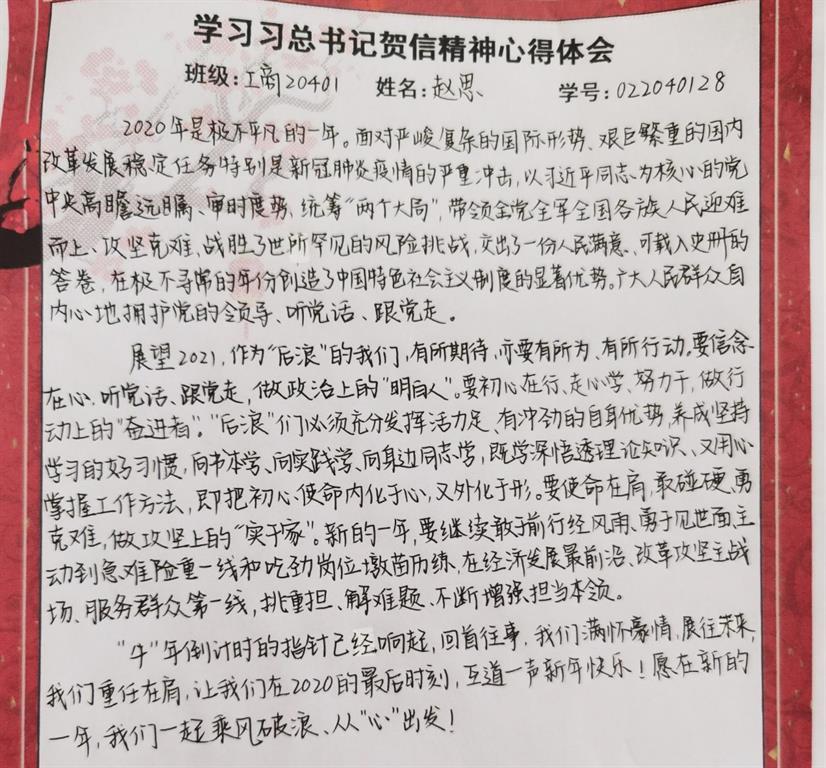 学习习总书记贺信精神心得体会
班级:工商20401 姓名:赵思 学号:022040128
2020年是极不平凡的一年。面对严峻复杂的国际形势、艰巨繁重的国内
改革发展稳定任务特别是新冠肺炎疫情的严重冲击,以习近平同志为核心的党
中央高瞻远瞩、审时度势,统筹“两个大局”,带领全党全军全国各族人民迎难
而上、攻坚克难,战胜了世所罕见的风险挑战,交出了一份人民满意、可载入史册的
答卷,在极不寻常的年份创造了中国特色社会主义制度的显著优势。广大人民群众自
内心地拥护党的领导、听党话、跟党走。
展望2021,作为“后浪”的我们,有所期待,亦要有所为、有所行动。要信念
在心,听党话、跟党走,做政治上的“明白人”。要初心在行、走心学、努力干,做行
动上的“奋进者”。“后浪”们必须充分发挥活力足、有冲劲的自身优势,养成坚持
学习的好习惯,向书本学、向实践学、向身边同志学,既学深悟透理论知识、又用心
掌握工作方法,即把初心、使命内化于心,又外化于形。要使命在肩,敢碰硬、勇
克难,做攻坚上的“实干家”。新的一年,要继续敢于前行经风雨、勇于见世面,主
动到急、难险重一线和吃劲岗位墩苗历练,在经济发展最前沿、改革攻坚主战
场、服务群众第一线,挑重担、解难题、不断增强担当本领。
“牛”年倒计时的指针已经响起,回首往事,我们满怀豪情,展往未来,
我们重任在肩,让我们在2020的最后时刻,互道一声新年快乐!愿在新的
一年,我们一起乘风破浪、从“心”出发!